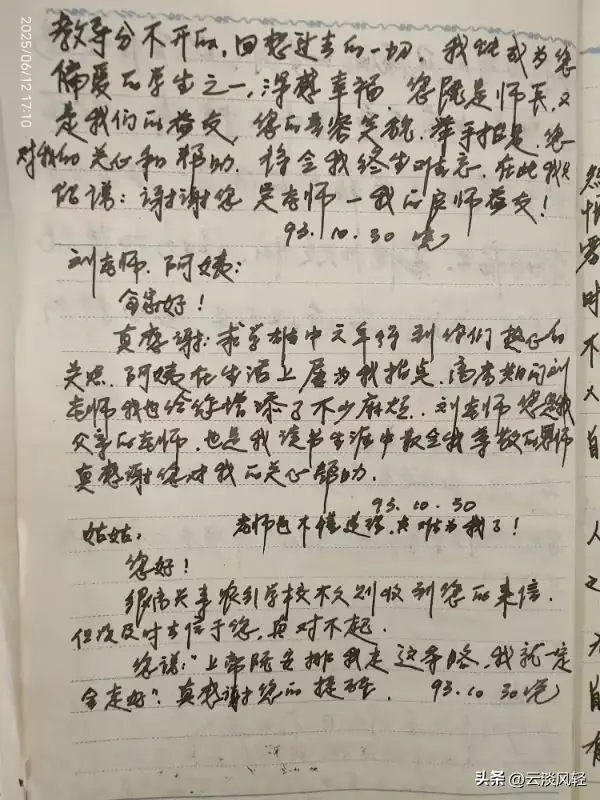 教导分不开的,回想过去的一切,我能成为您
偏爱的学生之一,深感幸福,您既是师长,又
是我们的益友,您的音容笑貌,举手投足,您
对我的关心和帮助,将令我终生难忘,在此我只
能说:谢谢您 吴老师—我的良师益友!
93.10.30晚
刘老师、阿姨:
全家好!
真感谢:求学雄中六年得到你们热心的
关照,阿姨在生活上屡为我指点,高考期间刘
老师我也给您增添了不少麻烦,刘老师您是我
父亲的老师,也是我读书生涯中最令我尊敬的恩师
真感谢您对我的关心帮助.
93.10.30
老师也不懂道理,太难为我了!
姑姑:
您好!
很高兴来农引学校不久则收到您的来信.
但没及时去信于您,真对不起.
您说:“上帝既安排我走这条路,我就一定
会走好”.真感谢您的提醒. 93.10.30晚
2025/06/12 17:10
怨
悄
害
时
不
人
自
人
之
无
自
有
头条 @云淡风轻